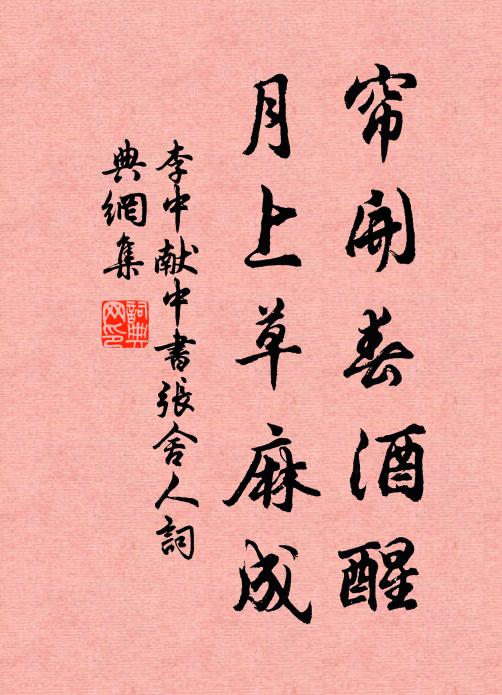 帘開春酒醒
月上草麻成
李中献中書張舍人詞
典網集
詞典网印